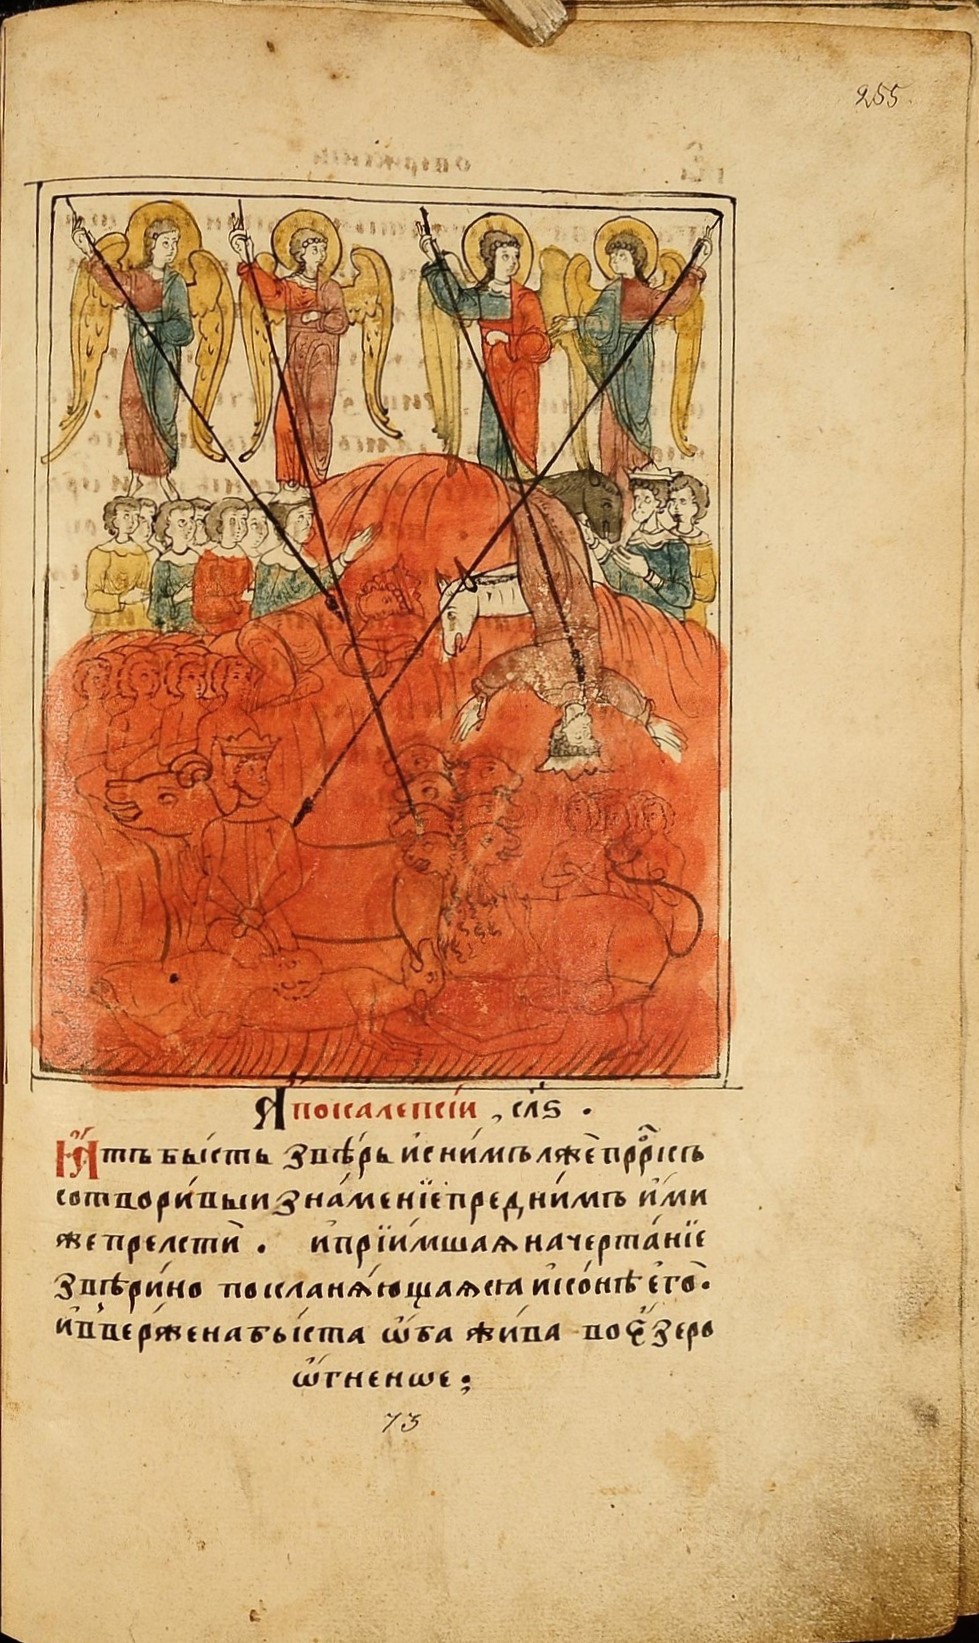 255.
Апокалепсіи, сл҃ѕ .
Ꙗ҆тъ бы́сть ѕвѣ́рь и҆ снимъ лже прⷪ҇ркъ
сотвори́выи зна́менїе пред ни́мъ и҆́ми
же прелсти̇̀ . и҆ прїи́мшаѧ начерта́нїе
ѕвѣри́но покланѧ́ющаѧсѧ и҆ко́нѣ е҆го̀.
и҆ вве́ржена бы́ста ѡ҆́ба жи́ва во є҆́зеро
ѡ҆́гненѡе ;
73